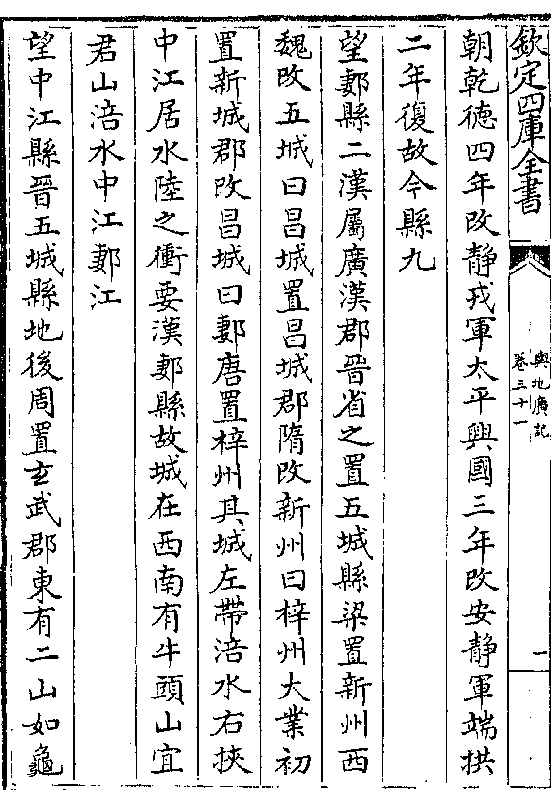 欽定四庫全書
輿地廣記
卷三十一
一
朝乾德四年改靜戎軍太平興國三年改安靜軍端拱
二年復故今縣九
望郪縣二漢屬廣漢郡晉省之置五城縣梁置新州西
魏改五城曰昌城置昌城郡隋改新州曰梓州大業初
置新城郡改昌城曰郪唐置梓州其城左帶涪水右挾
中江居水陸之衝要漢郪縣故城在西南有牛頭山宜
君山涪水中江郪江
望中江縣晉五城縣地後周置玄武郡東有二山如龜